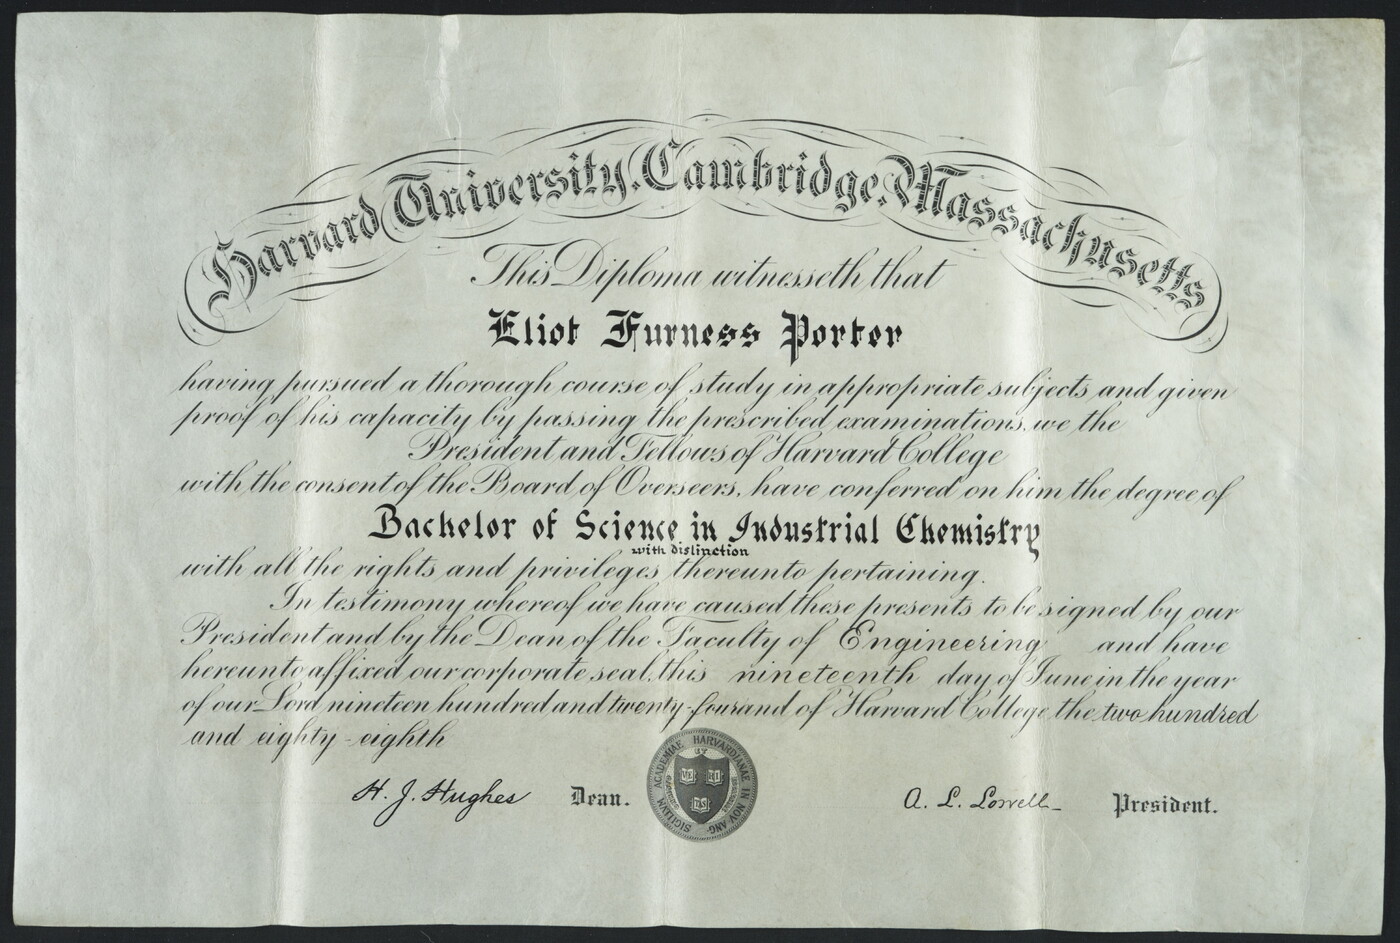 Harvard University, Cambridge, Massachusetts
This Diploma witnesseth that
Eliot Furness Porter
having pursued a thorough course of study in appropriate subjects and given
proof of his capacity by passing the prescribed examinations, we the
President and Fellows of Harvard College
with the consent of the Board of Overseers, have conferred on him the degree of
Bachelor of Science in Industrial Chemistry
with distinction
with all the rights and privileges thereunto pertaining.
In testimony whereof we have caused these presents to be signed by our
President and by the Dean of the Faculty of Engineering and have
hereunto affixed our corporate seal, this nineteenth day of June in the year
of our Lord nineteen hundred and twenty-four and of Harvard College the two hundred
and eighty-eighth
H. J. Hughes Dean.
SIGILLVM ACADEMIAE HARVARDIANAE IN NOV ANG
VE RI TAS
A. L. Lowell President.